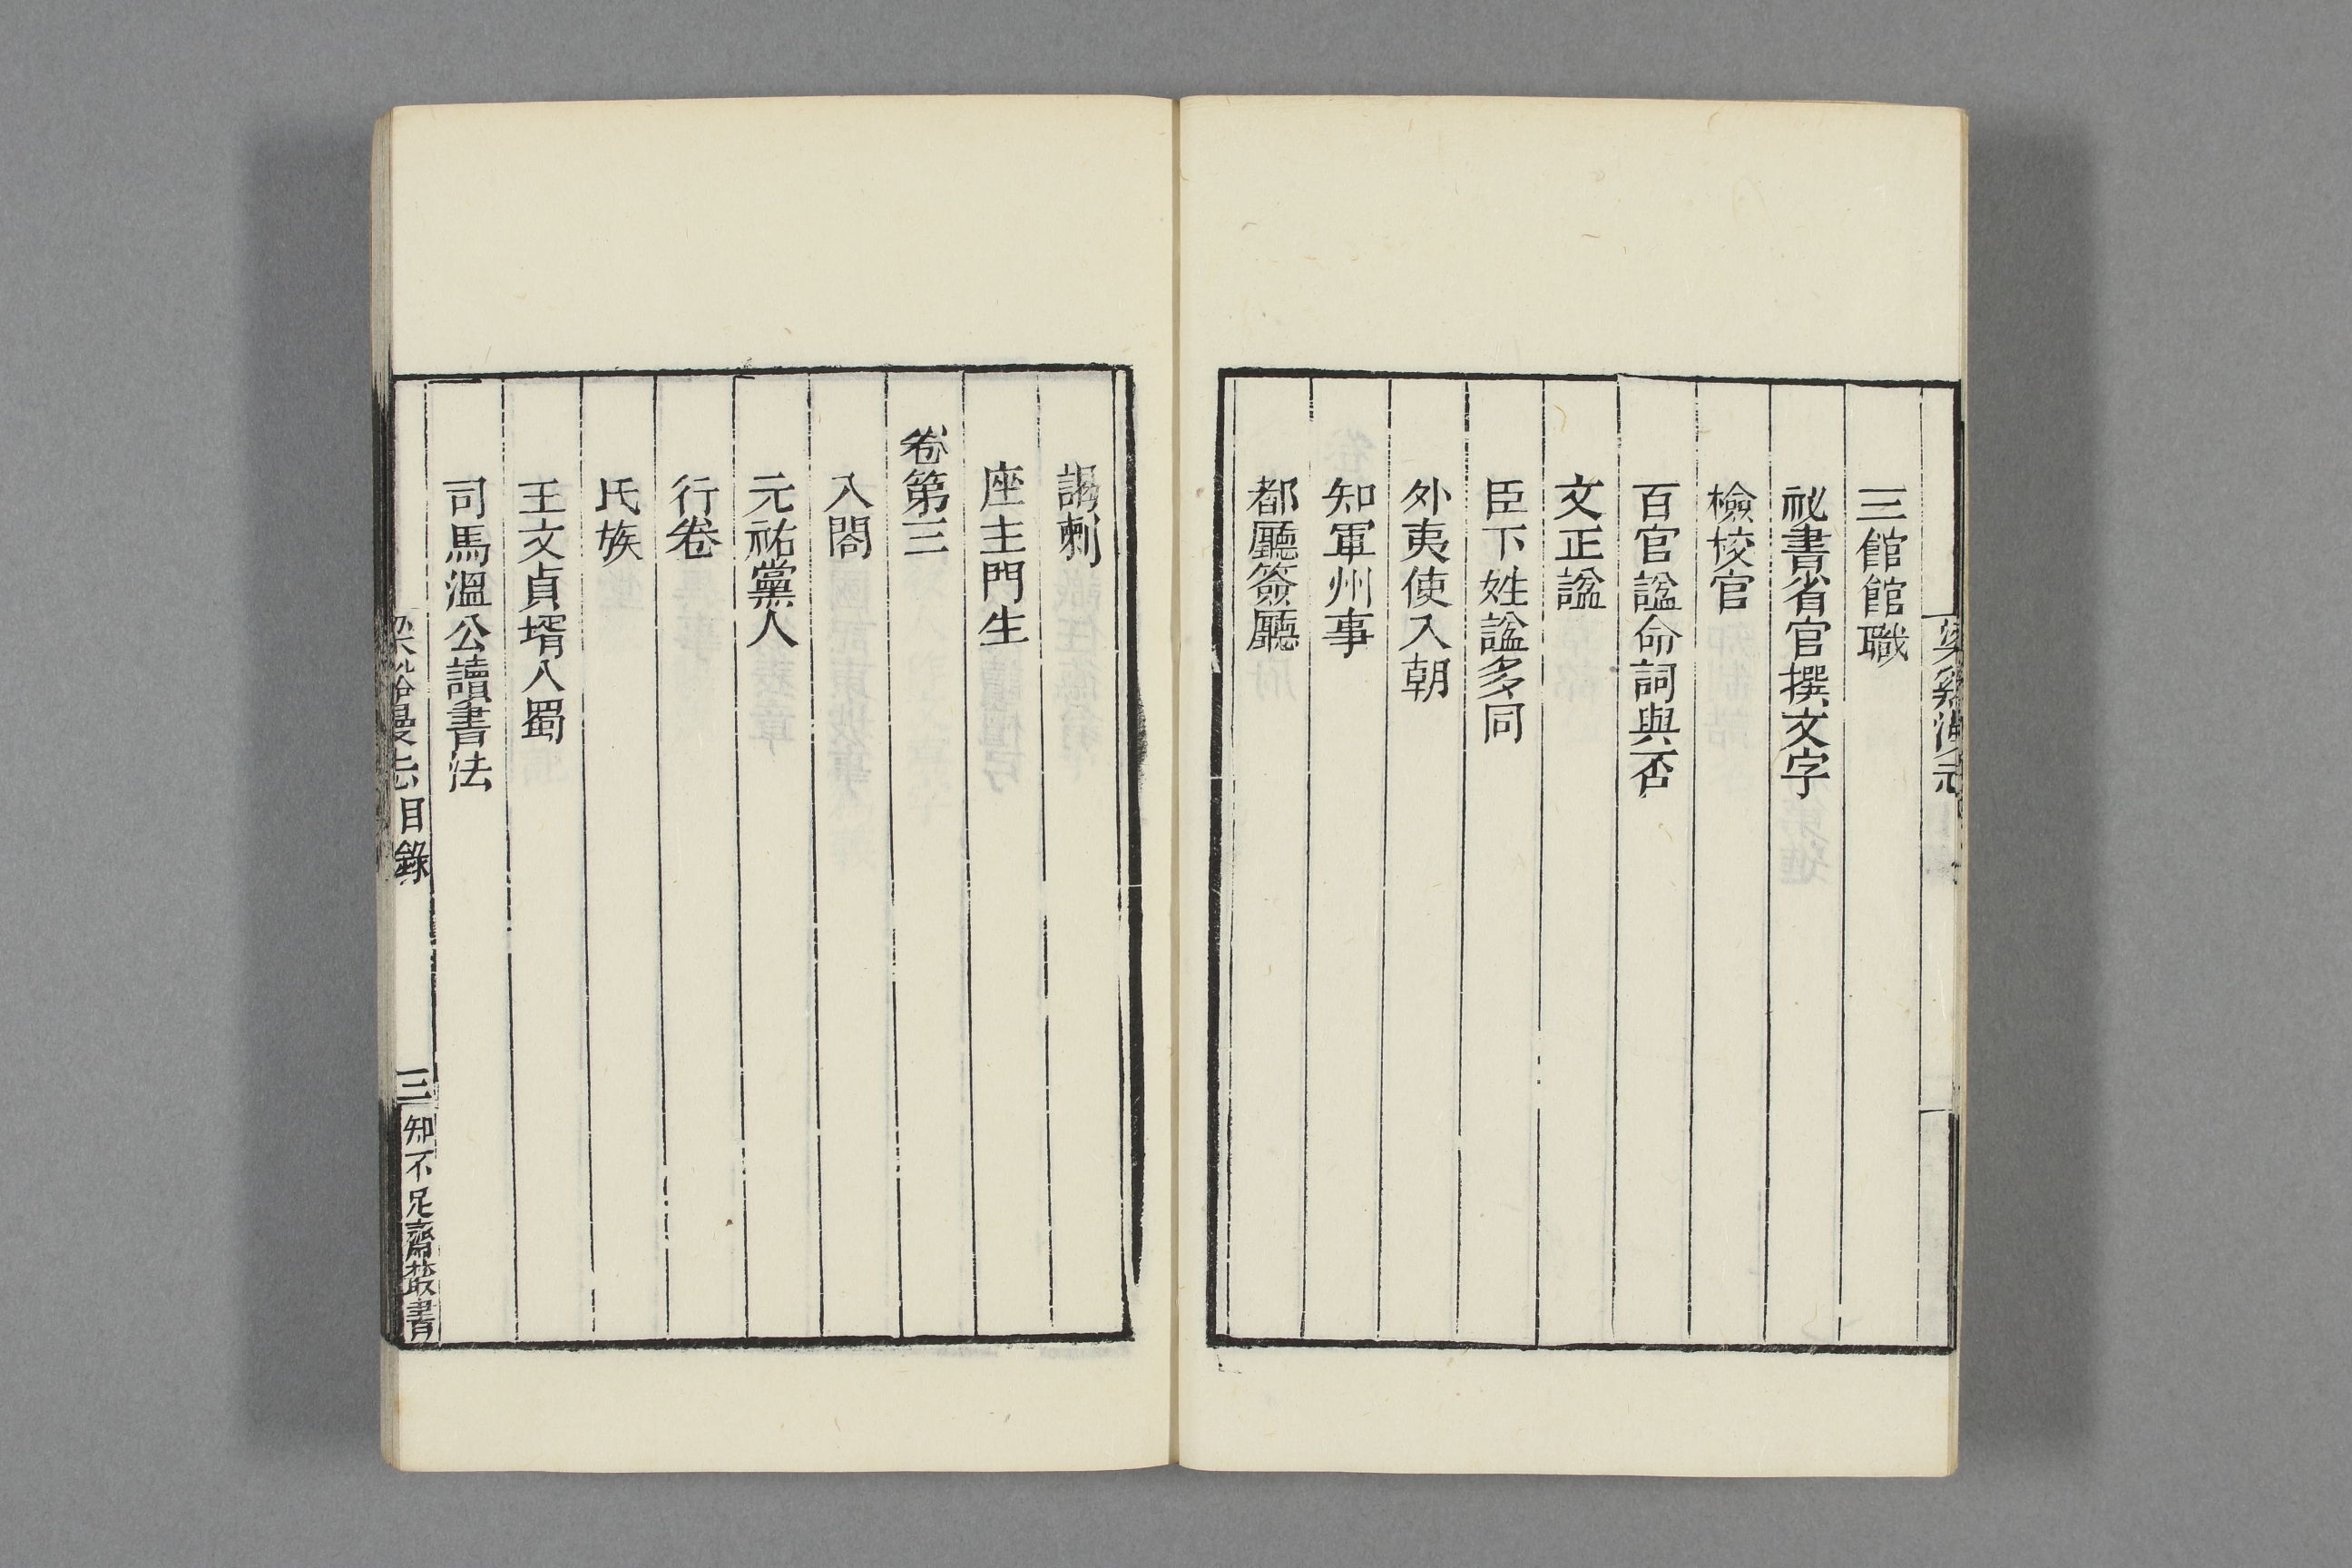 三館館職
祕書省官撰文字
檢校官
百官諡命詞與否
文正諡
臣下姓諡多同
外夷使入朝
知軍州事
都廳簽廳
謁刺
座主門生
卷第三
入閤
元祐黨人
行卷
氏族
王文貞壻入蜀
司馬溫公讀書法
梁谿漫志目錄
三
知不足齋叢書